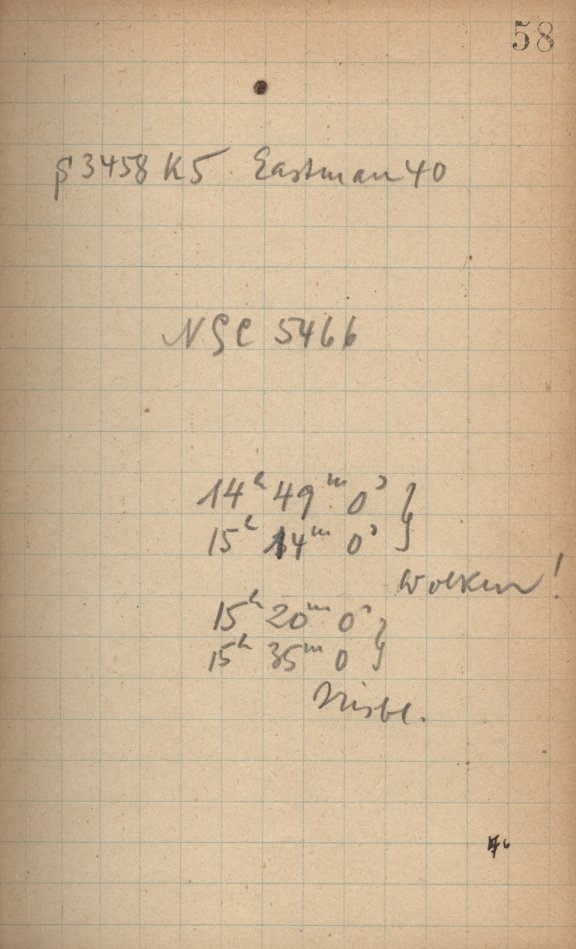 58
p 3458 K5 Eastman 40
NGC 5466
14ʰ 49ᵐ 0ˢ }
15ʰ 14ᵐ 0ˢ }
Wolken!
15ʰ 20ᵐ 0ˢ }
15ʰ 35ᵐ 0 }